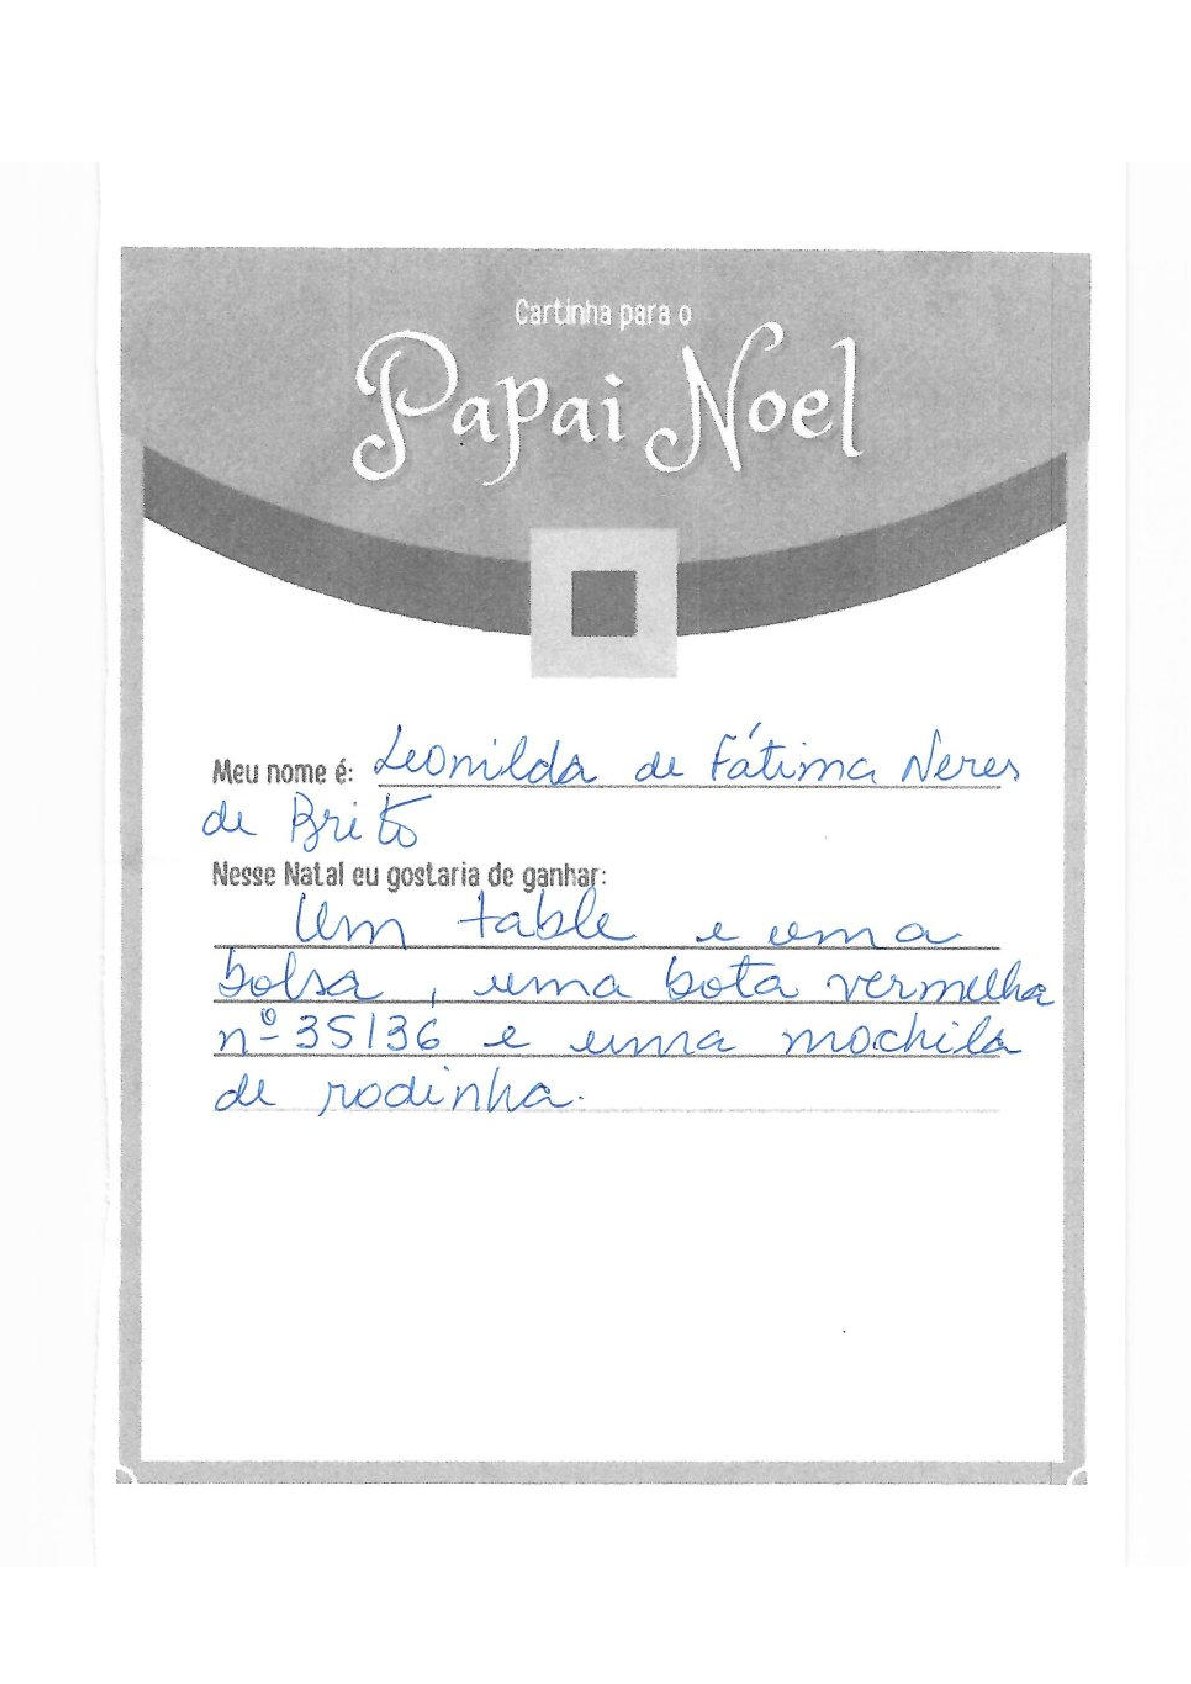 Cartinha para o
Papai Noel
Meu nome é: Leonilda de Fátima Neres
de Brito
Nesse Natal eu gostaria de ganhar:
Um table e uma
bolsa, uma bota vermelha
nº 35/36 e uma mochila
de rodinha.